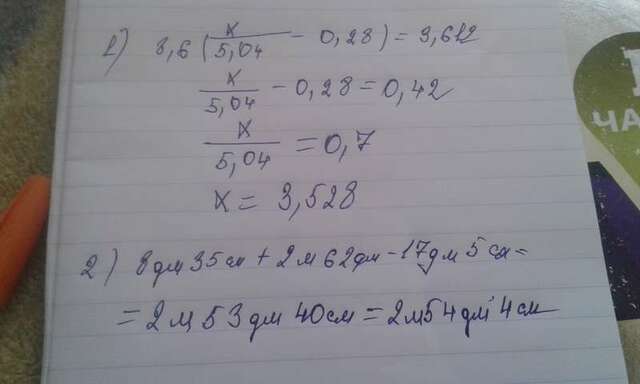 в) 8,6 (x/5,04 - 0,28) = 3,612
x/5,04 - 0,28 = 0,42
x/5,04 = 0,7
x = 3,528
2) 8 дм 35 см + 2 м 62 дм - 17 дм 5 см =
= 2 м 53 дм 40 см = 2 м 54 дм 4 см
ЧА